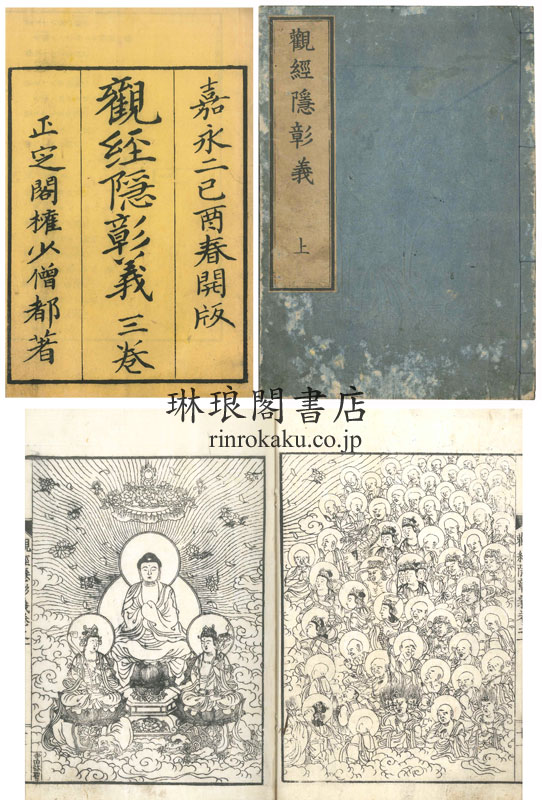 嘉永二己酉春開版
觀經隱彰義 三卷
正定閣權少僧都著
觀經隱彰義 上
琳琅閣書店
rinrokaku.co.jp